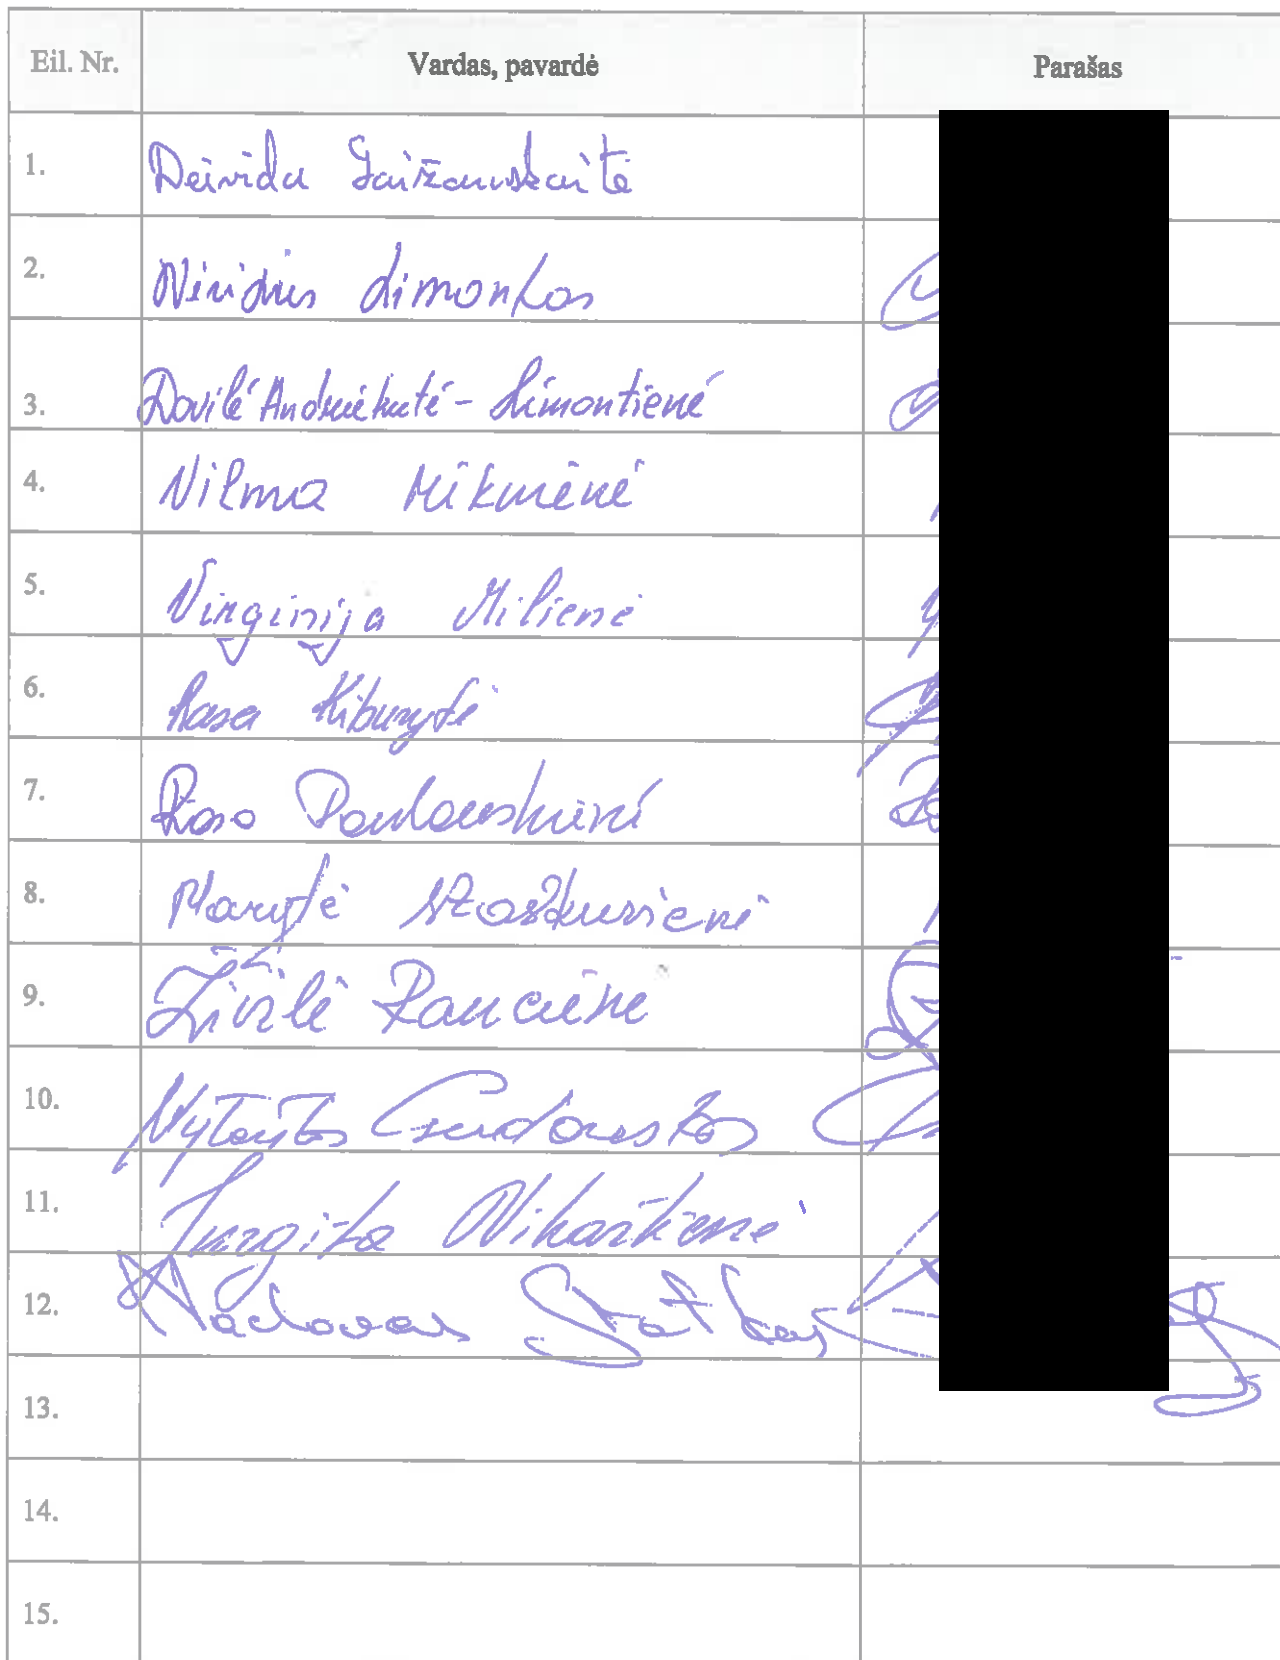 Eil. Nr. Vardas, pavardė Parašas
1. Deivida Gaižauskaitė
2. Viridius Limontas
3. Dovilė Andriekutė - Limontienė
4. Vilma Miknienė
5. Virginija Milienė
6. Rasa Kiburytė
7. Rasa Paulauskienė
8. Marytė
9. Živilė Raucienė
10. Vytautas
11. Jurgita Vikartienė
12. Vaclovas Statkus
13.
14.
15.